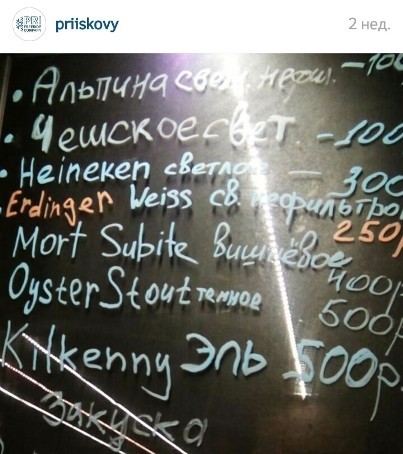 priiskovy
2 нед.
• Альпина свет. нефил. -100
• Чешское свет. -100
• Heineken светлое — 300
Erdinger Weiss св. нефильтро
250р
Mort Subite вишнёвое
400р
Oyster Stout темное
500р
Kilkenny Эль 500р
Закуска